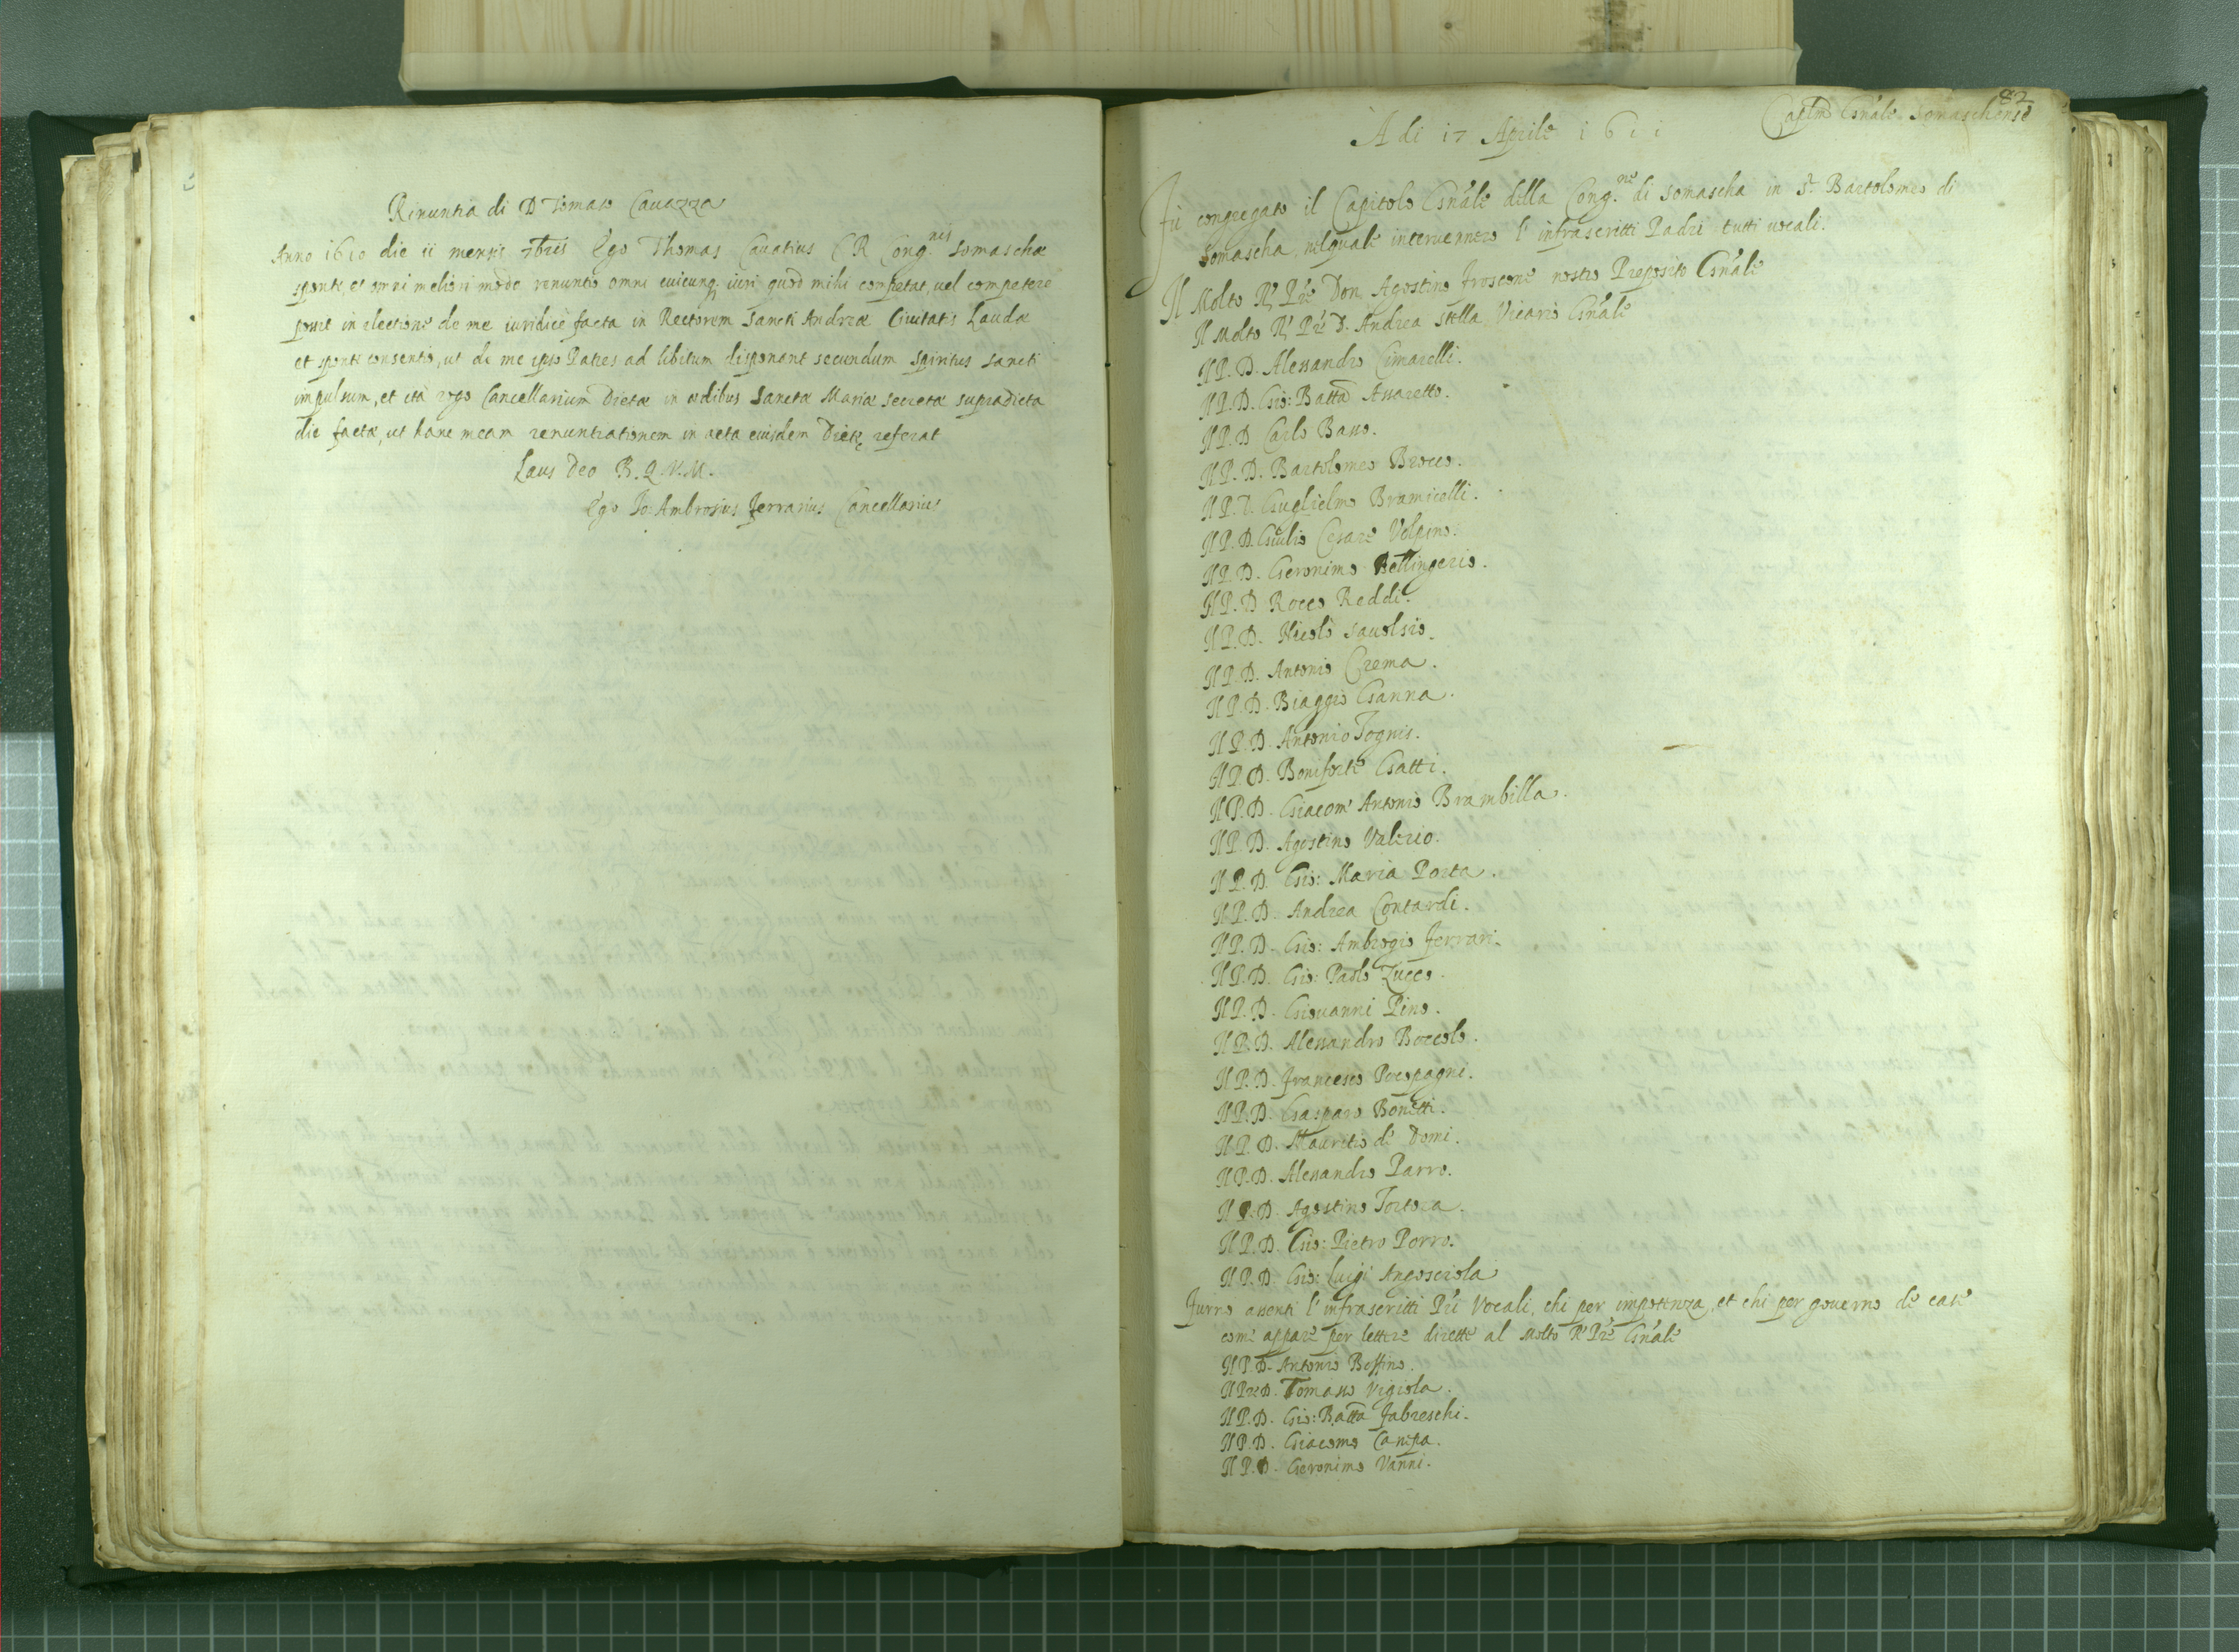 Rinuntia di D Tomaso Cauazza
Anno 1610 die 11 mensis 7bris Ego Thomas Cauatius C R Cong.nis Somaschæ
sponte, et omni meliori modo renuntio omni cuicunq; iuri quod mihi competat, uel competere
possit in electione de me iuridicè facta in Rectorem Sancti Andreæ Ciuitatis Laudæ
et sponte consentio, ut de me ipso Patres ad libitum disponant secundum Spiritus Sancti
impulsum, et ità rogo Cancellarium Dietæ in ædibus Sanctæ Mariæ Secretæ supradicta
die factæ, ut hanc meam renuntiationem in acta eiusdem Dietę referat
Laus Deo B.Q.V.M.
Ego Io: Ambrosius Ferrarius Cancellarius
82
Caplm Gnale Somaschense
A di 17 Aprile 1611
Fù congregato il Capitolo Gnale della Cong.ne di Somascha in S. Bartolomeo di
Somascha, nelquale interuennero l' infrascritti Padri tutti uocali.
Il Molto R. Pre Don Agostino Froscone nostro Preposito Gnale
Il Molto R. Pre D. Andrea Stella Vicario Gnale
Il P. D. Alessandro Cimarelli.
Il P. D. Gio: Batta Assaretto.
Il P. D Carlo Basso.
Il P. D. Bartolomeo Brocco.
Il P. D. Guglielmo Bramicelli.
Il P. D. Giulio Cesare Volpino.
Il P. D. Geronimo Bettingerio.
Il P. D Rocco Reddi.
Il P. D. Nicolò Sauolsio.
Il P. D. Antonio Crema.
Il P. D. Biaggio Ganna.
Il P. D. Antonio Tognis.
Il P. D. Boniforte Gatti.
Il P. D. Giacom' Antonio Brambilla.
Il P. D. Agostino Valerio.
Il P. D. Gio: Maria Porta.
Il P. D. Andrea Contardi.
Il P. D. Gio: Ambrogio Ferrari.
Il P. D. Gio: Paolo Zucco.
Il P. D. Giouanni Pino.
Il P. D. Alessandro Boccolo.
Il P. D. Francesco Pocopagni.
Il P. D. Gasparo Bonetti.
Il P. D. Mauritio de Domi.
Il P. D. Alessandro Parro.
Il P. D. Agostino Tortora.
Il P. D. Gio: Pietro Porro.
Il P. D. Gio: Luigi Angosciola
Furno assenti l' infrascritti Pri Vocali, chi per impotenza, et chi per gouerno de case
come appare per lettere dirette al Molto R. Pre Gnale
Il P. D. Antonio Boffino.
Il P. D. Tomaso Vigiola.
Il P. D. Gio: Batta Fabreschi.
Il P. D. Giacomo Campa.
Il P. D. Geronimo Vanni.